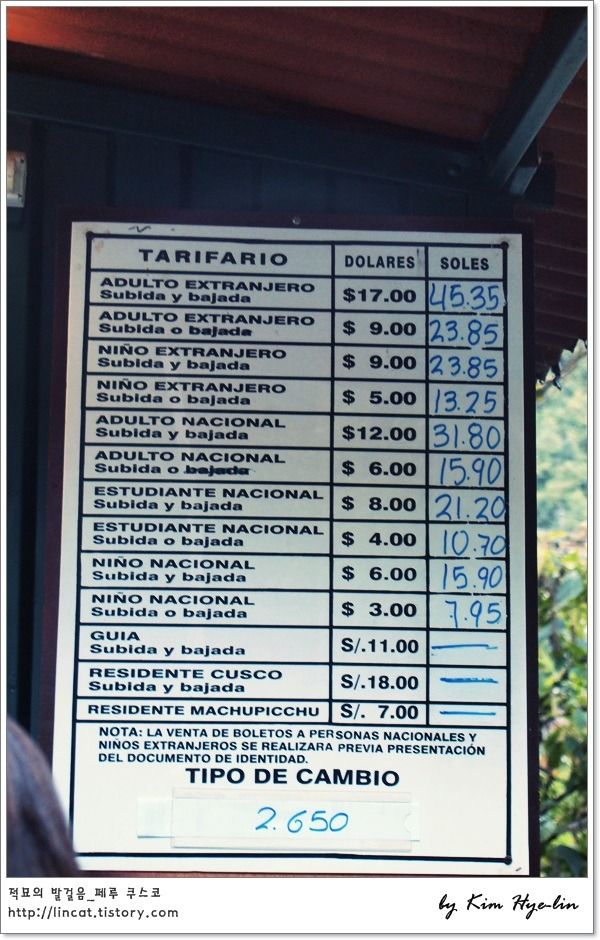 TARIFARIO DOLARES SOLES
ADULTO EXTRANJERO
Subida y bajada $17.00 45.35
ADULTO EXTRANJERO
Subida o bajada $ 9.00 23.85
NIÑO EXTRANJERO
Subida y bajada $ 9.00 23.85
NIÑO EXTRANJERO
Subida o bajada $ 5.00 13.25
ADULTO NACIONAL
Subida y bajada $12.00 31.80
ADULTO NACIONAL
Subida o bajada $ 6.00 15.90
ESTUDIANTE NACIONAL
Subida y bajada $ 8.00 21.20
ESTUDIANTE NACIONAL
Subida o bajada $ 4.00 10.70
NIÑO NACIONAL
Subida y bajada $ 6.00 15.90
NIÑO NACIONAL
Subida o bajada $ 3.00 7.95
GUIA
Subida y bajada S/.11.00
RESIDENTE CUSCO
Subida y bajada S/.18.00
RESIDENTE MACHUPICCHU S/. 7.00
NOTA: LA VENTA DE BOLETOS A PERSONAS NACIONALES Y
NIÑOS EXTRANJEROS SE REALIZARA PREVIA PRESENTACIÓN
DEL DOCUMENTO DE IDENTIDAD.
TIPO DE CAMBIO
2.650
적묘의 발걸음_페루 쿠스코
http://lincat.tistory.com
by Kim Hye-lin